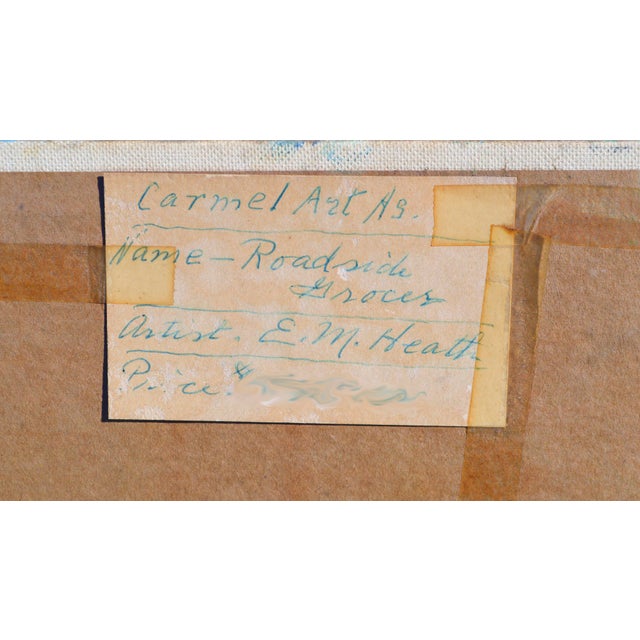 Carmel Art As.
Name - Roadside
Grocer
Artist. E. M. Heath
Price $